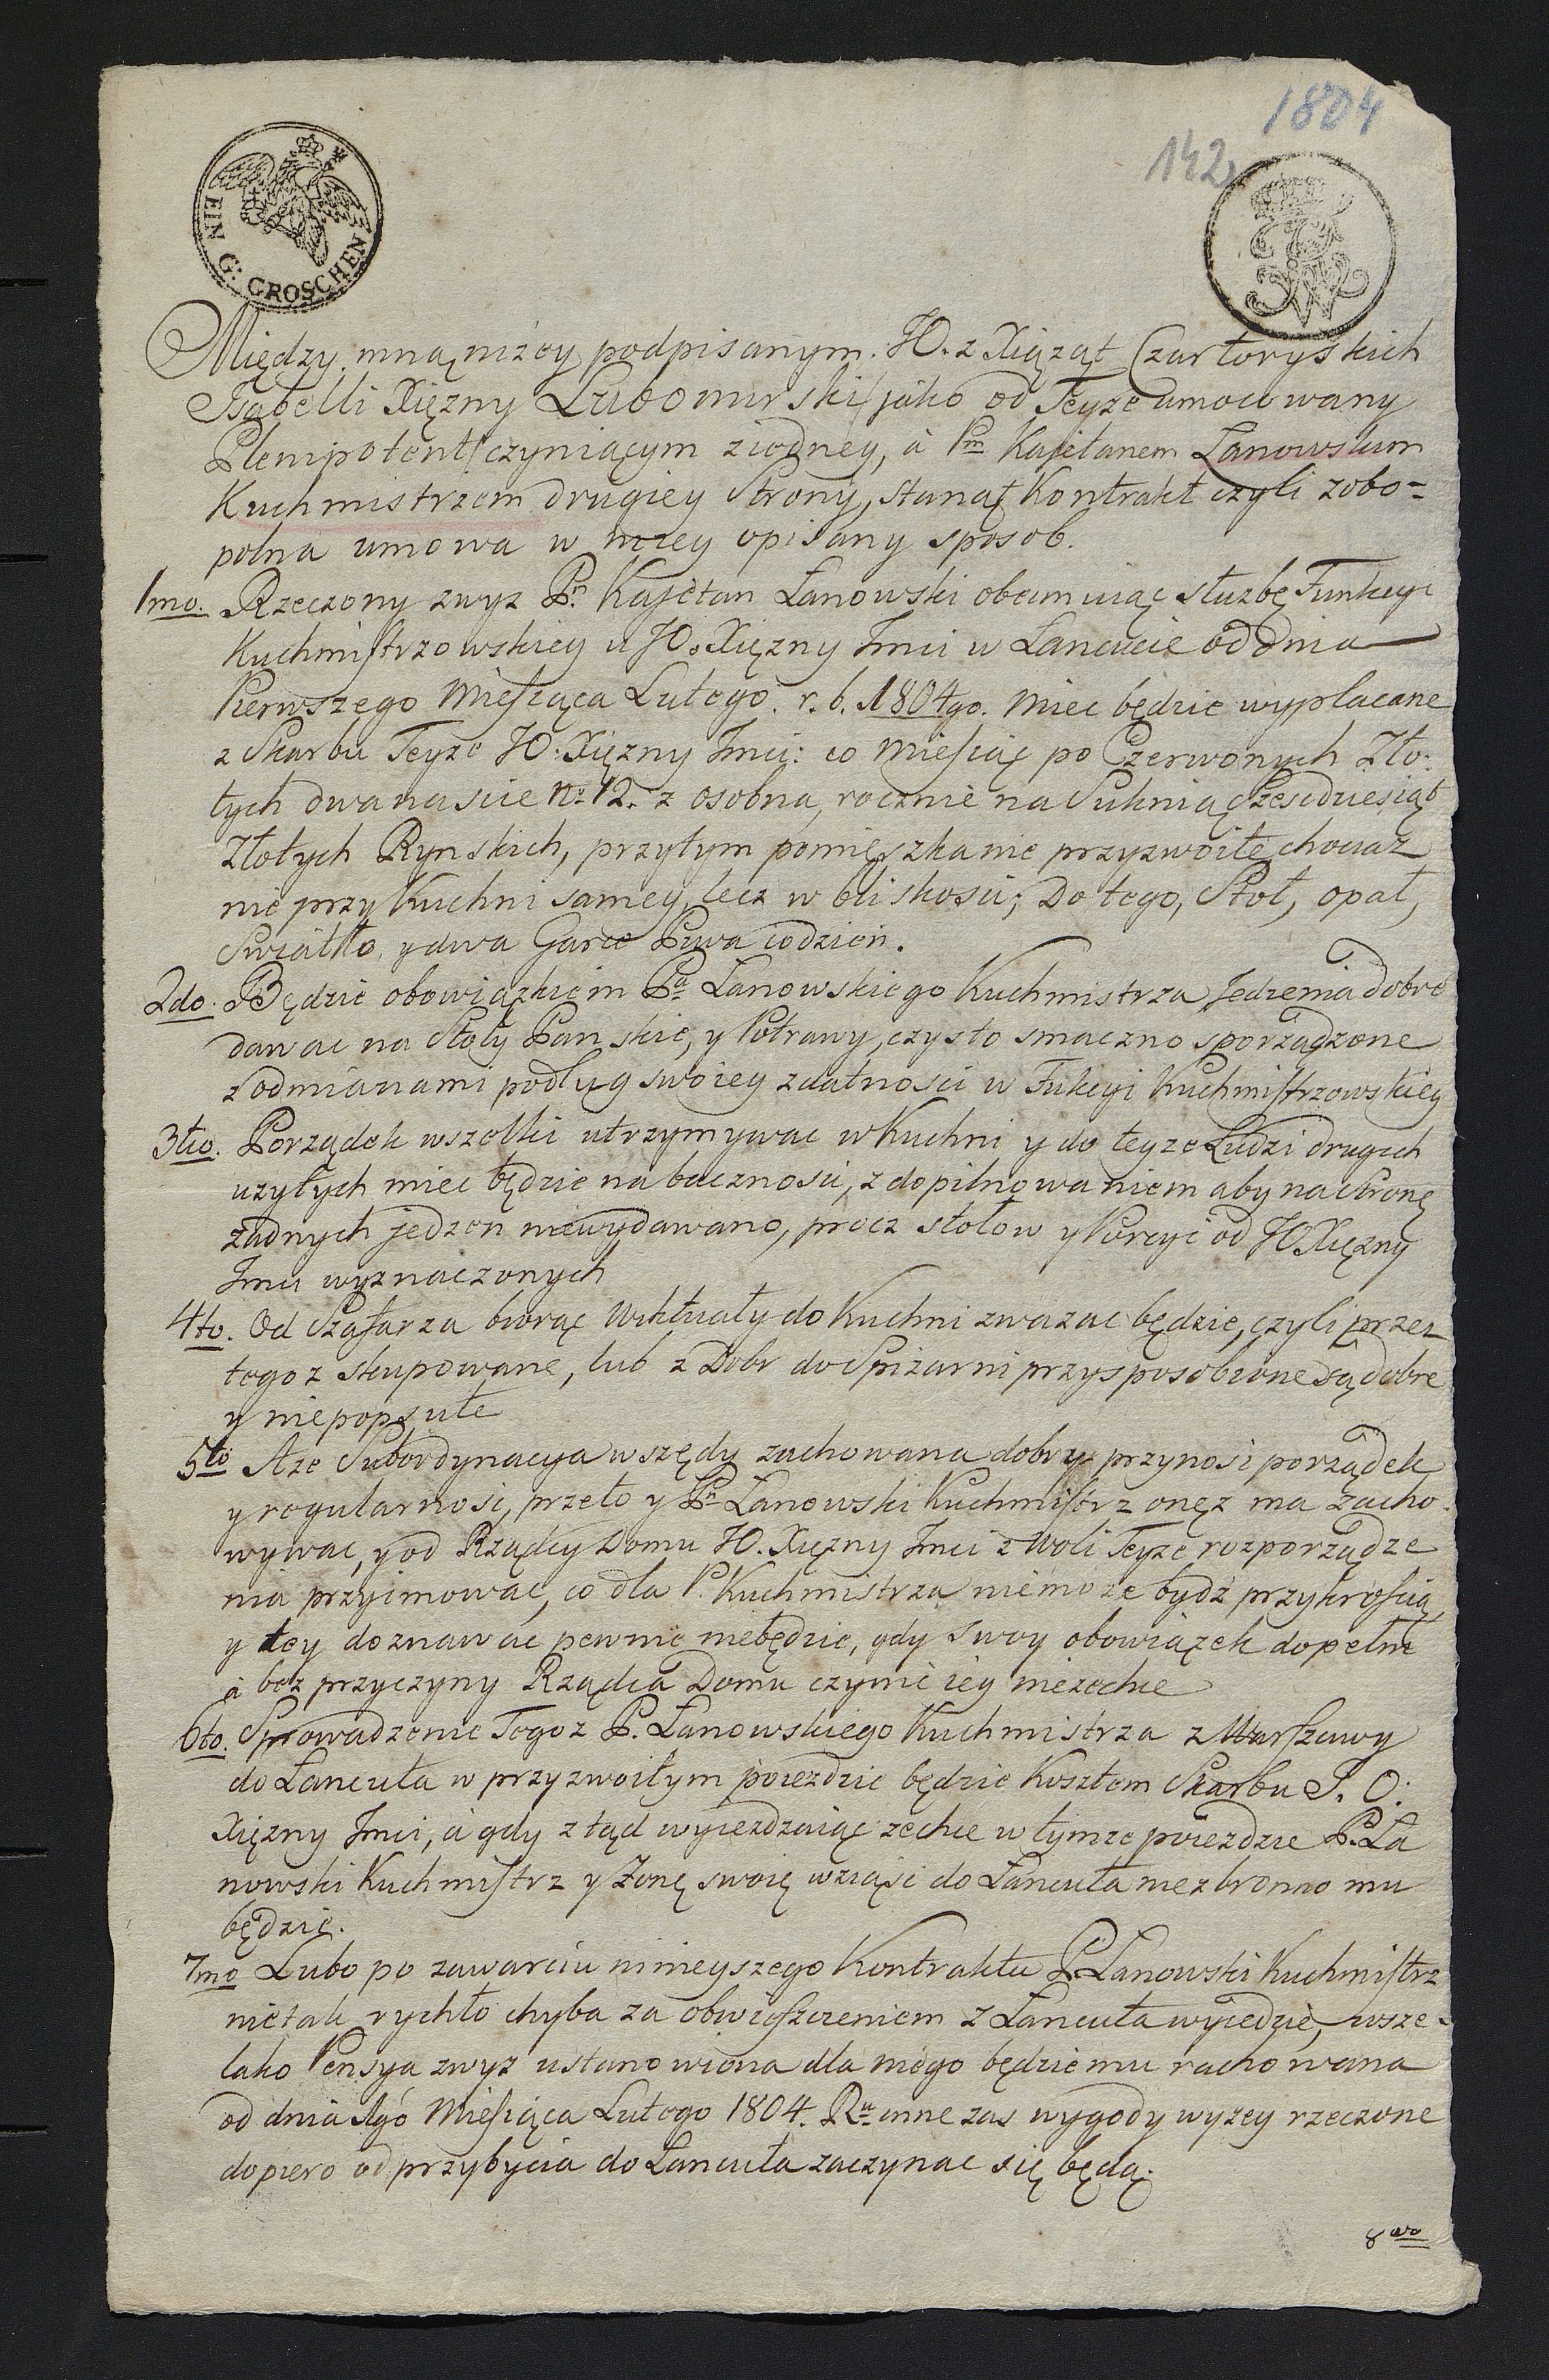 1804
142
EIN G: GROSCHEN
Między mną niżey podpisanym. JO. z Xiążąt Czartoryskich
Izabelli Xiężny Lubomirski/jako od Teyże umocowany
Plenipotent/czyniącym ziedney, à Pm Kajetanem Lanowskim
Kuchmistrzem drugiey Strony, stanął Kontrakt czyli zobo=
polna umowa w niżey opisany sposob.
1mo. Rzeczony zwyz Pn. Kajetan Lanowski obeimuiąc służbę Funkcyi
Kuchmistrzowskiey u JO. Xiężny Jmci w Lancucie od dnia
Pierwszego Miesiąca Lutego. r. b. 1804go. miec będzie wyplacane
z Skarbu Teyże JO. Xiężny Jmci: co Miesiąc po Czerwonych Zło:
tych dwanascie No. 12. z osobna, rocznie na Suknią Szescdziesiąt
Złotych Rynskich, przytym pomięszkanie przyzwoite chociaz
nie przy Kuchni samey, lecz w bliskosci; Do tego, Stoł, opał,
Swiatło, y dwa Garce Piwa codzien.
2do. Będzie obowiązkiem Pa Lanowskiego Kuchmistrza Jedzenia dobre
dawac na Stoły Panskie, y Potrawy, czysto smaczno sporządzone
z odmianami podług swoiey zdatnosci w Fukcyi Kuchmistrzowskiey
3tio. Porządek wszelki utrzymywac w Kuchni y do teyze Ludzi drugich
uzytych miec będzie na bacznosci, z dopilnowaniem aby na stronę
zadnych jedzen niewydawano, procz stołow y Porcyi od JO Xiężny
Jmci wyznaczonych
4to. Od Szafarza biorąc wiktuały do Kuchni zwazac będzie, czyli przez
tegoz skupowane, lub z Dobr do Spiżarni przysposobione są dobre
y niepopsute
5to Aże Subordynacya wszędy zachowana dobry przynosi porządek
y regularnosc, przeto y Pn Lanowski Kuchmistrz onęz ma zacho-
wywac, y od Rządcy Domu JO. Xiężny Jmci z woli Teyze rozporządze
nia przyimowac, co dla P. Kuchmistrza niemoze bydz przykroscią,
y tey doznawac pewnie niebędzie, gdy swoy obowiązek dopełni
à bez przyczyny Rządca Domu czynic iey niezechce
6to. Sprowadzenie Tegoz P. Lanowskiego Kuchmistrza z Warszawy
do Lancuta w przyzwoitym poiezdzie będzie kosztem Skarbu J. O:
Xiężny Jmci, à gdy ztąd wyiezdzaiąc zechce w tymze poiezdzie P. La
nowski Kuchmistrz y Zonę swoię wziąsc do Lancuta niezbronno mu
będzie.
7mo Lubo po zawarciu ninieyszego Kontraktu P. Lanowski Kuchmistrz
nietak rychło chyba za obwieszczeniem z Lancuta wyiedzie, wsze-
lako Pensya zwyz ustanowiona dla niego będzie mu rachowana
od dnia 1go Miesiąca Lutego 1804. Ru inne zas wygody wyzey rzeczone
dopiero od przybycia do Lancuta zaczynac się będą.
8vo